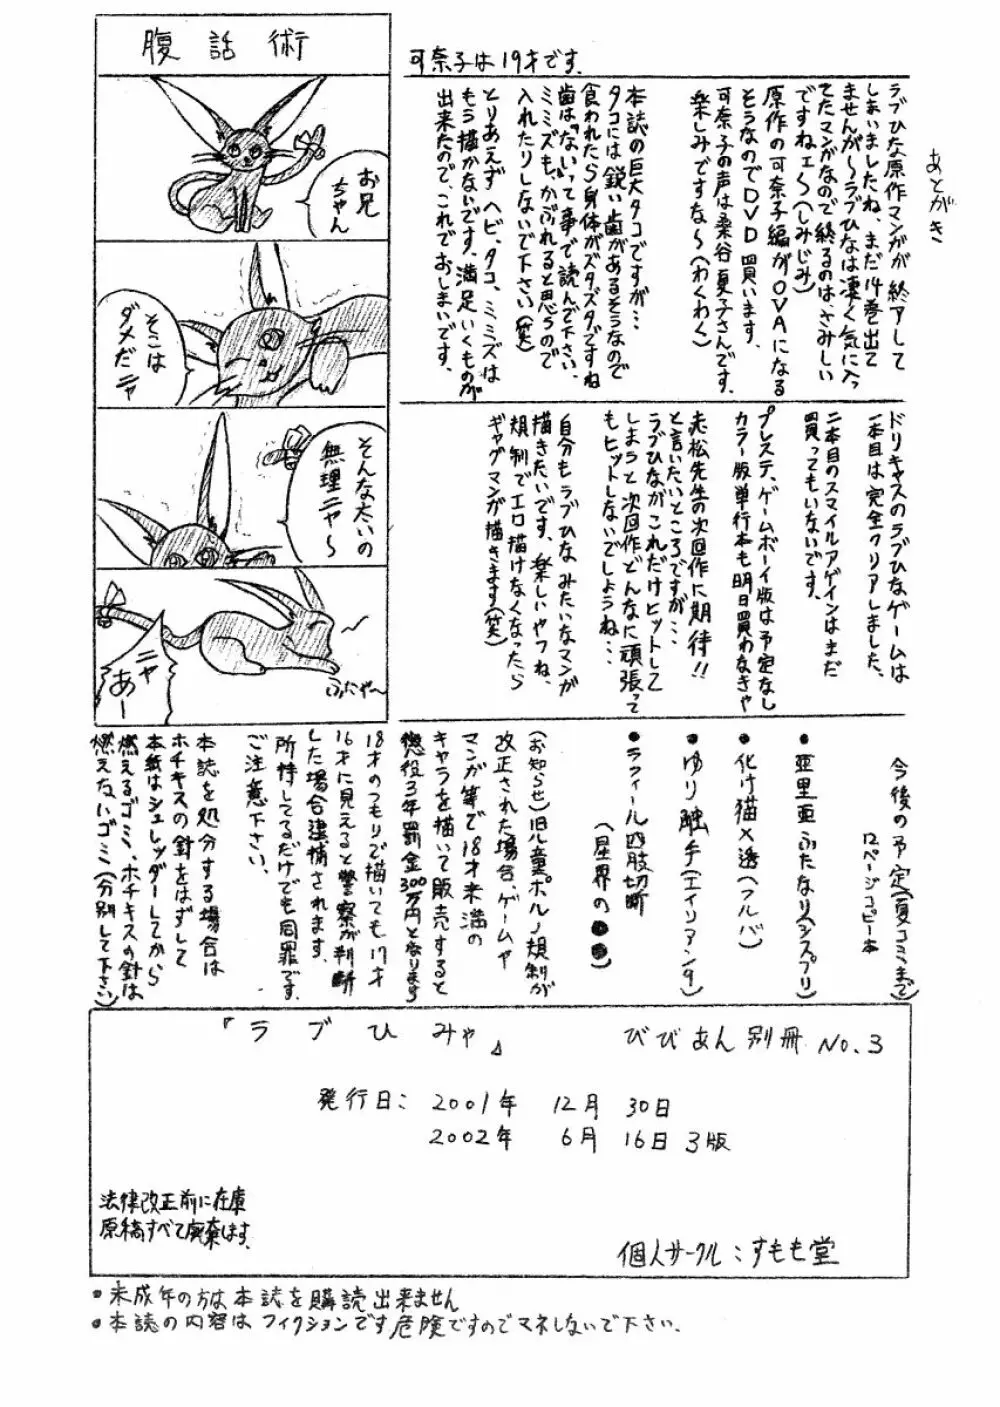 腹話術
お兄
ちゃん
そこは
ダメだニャ
そんな太いの
無理ニャ〜
ニャ
あー
ふにゃ〜
あとがき
可奈子は19才です.
ラブひな原作マンガが終アして
しまいましたね、まだ14巻出て
ませんが〜ラブひなは凄く気に入っ
てたマンガなので終るのは、さみしい
ですねェ〜(しみじみ)
原作の可奈子編がOVAになる
そうなのでDVD買います.
可奈子の声は桑谷夏子さんです.
楽しみですな〜(わくわく)
本誌の巨大タコですが…
タコには鋭い歯があるそうなので
食われたら身体がズタズタですね
歯は「ない」って事で読んで下さい.
ミミズも、かぶれると思うので
入れたりしないで下さい(笑)
とりあえず ヘビ、タコ、ミミズは
もう描かないです.満足いくものが
出来たので、これでおしまいです.
ドリキャスのラブひなゲームは
一本目は完全クリアしました.
二本目のスマイルアゲインはまだ
買ってもいないです.
プレステ、ゲームボーイ版は予定なし
カラー版単行本も明日買わなきゃ
赤松先生の次回作に期待!!
と言いたいところですが…
ラブひながこれだけヒットして
しまうと次回作どんなに頑張って
もヒットしないでしょうね…
自分もラブひなみたいなマンガ
描きたいです.楽しいやつね、
規制でエロ描けなくなったら
ギャグマンガ描きます(笑)
今後の予定(夏コミまで)
12ページコピー本
●亜里亜ふたなり(シスプリ)
●化け猫×透(フルバ)
●ゆり触手(エイリアン9)
●ラフィール四肢切断
(星界の●●)
(お知らせ)旧児童ポルノ規制が
改正された場合、ゲームや
マンガ等で18才未満の
キャラを描いて販売すると
懲役3年罰金300万円となります
18才のつもりで描いても17才
16才に見えると警察が判断
した場合逮捕されます.
所持してるだけでも同罪です.
ご注意下さい.
本誌を処分する場合は
ホチキスの針をはずして
本紙はシュレッダーしてから
燃えるゴミ、ホチキスの針は
燃えないゴミ(分別して下さい)
『ラブひみゃ』 びびあん別冊 No.3
発行日: 2001年 12月 30日
2002年 6月 16日 3版
法律改正前に在庫
原稿すべて廃棄します.
個人サークル:すもも堂
●未成年の方は本誌を購読出来ません
●本誌の内容はフィクションです危険ですのでマネしないで下さい.